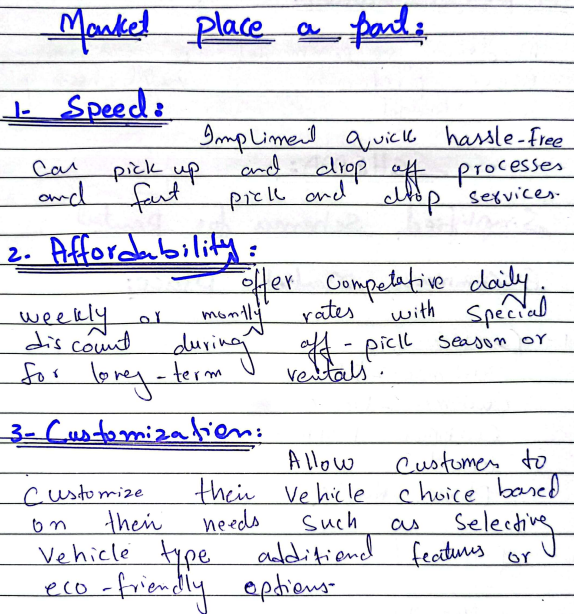 Market place a part:
1- Speed:
Impliment quick hassle-free
Car pick up and drop off processes
and fast pick and drop services.
2. Affordability:
offer Competative daily.
weekly or montly rates with special
discount during off-pick season or
for long-term rentals.
3- Customization:
Allow customer to
customize their vehicle choice based
on their needs such as selecting
vehicle type additional features or
eco-friendly options.